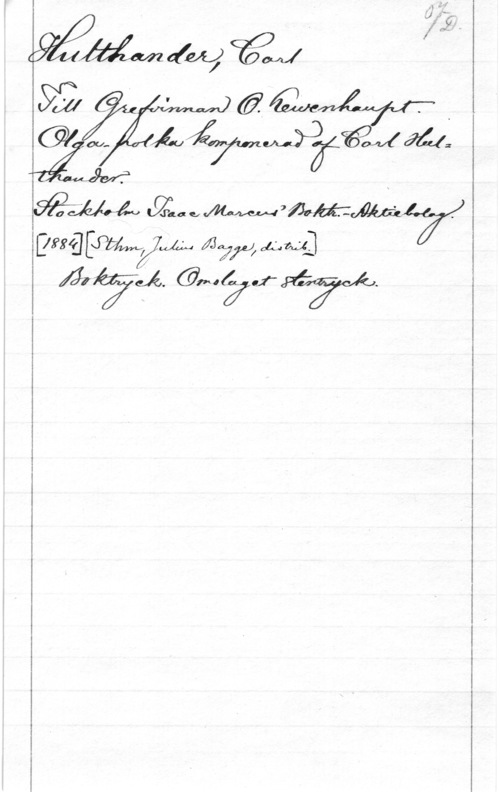 07/D.
Hulthander, Carl
Till Grefvinnan O. Lewenhaupt.
Olga-polka komponerad af Carl Hul=
thander.
Stockholm Isaac Marcus' Boktr.-Aktiebolag.
[1884] [Sthm, Julius Bagge, distrib.]
Boktryck. Omslaget stentryck.